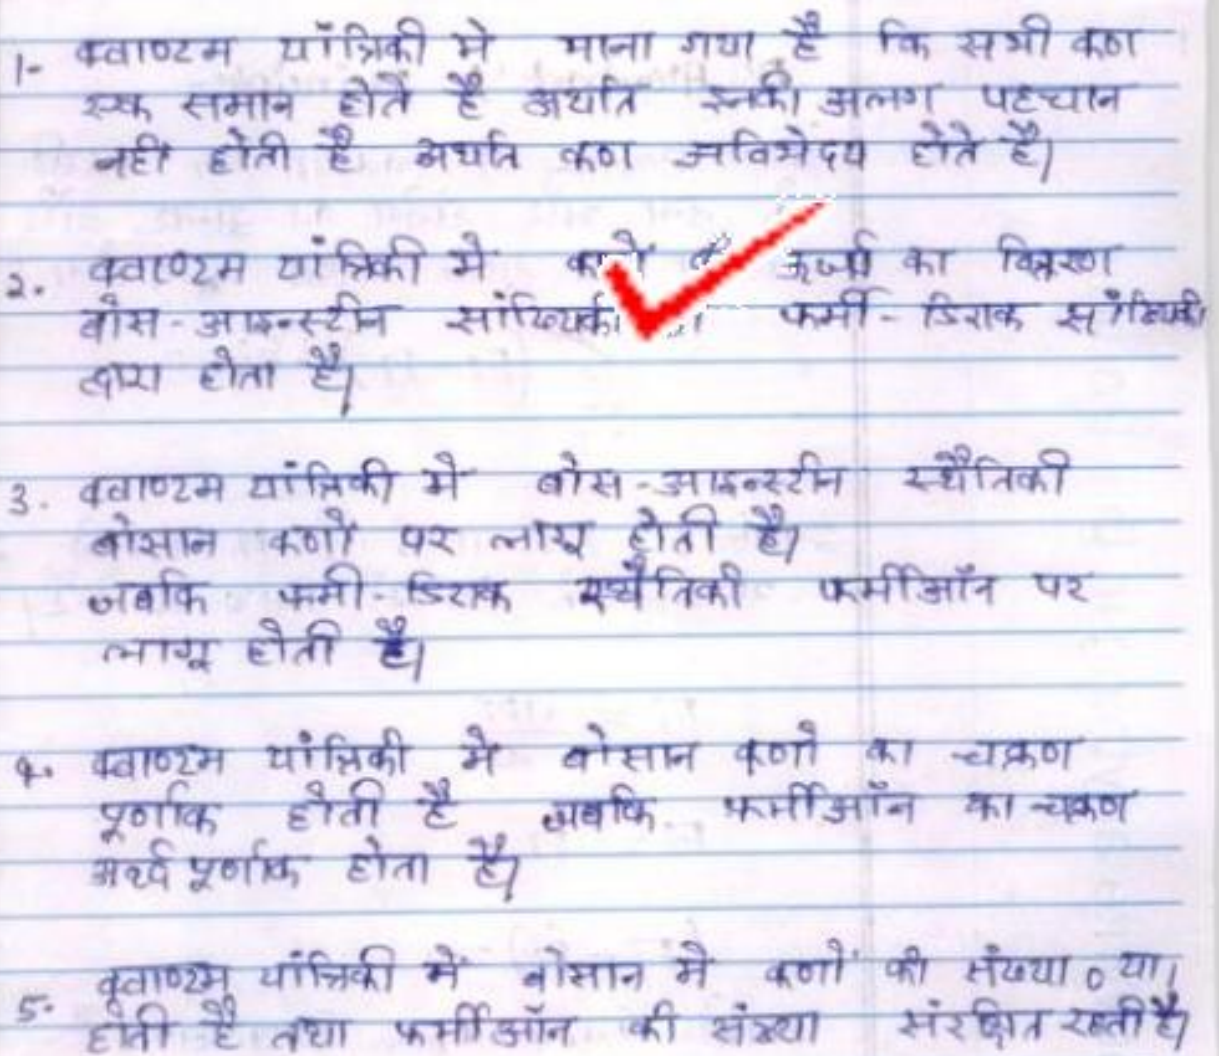 1- क्वाण्टम यांत्रिकी मे माना गया है कि सभी कण
एक समान होते है अर्थात इनकी अलग पहचान
नही होती है अर्थात कण अविभेदय होते है।
2. क्वाण्टम यांत्रिकी मे ऊर्जा का वितरण
बोस-आइन्स्टीन सांख्यिकी फर्मी-डिराक सांख्यिकी
द्वारा होता है।
3. क्वाण्टम यांत्रिकी मे बोस-आइन्स्टीन स्थैतिकी
बोसान कणो पर लागू होती है।
जबकि फर्मी-डिराक स्थैतिकी फर्मीऑन पर
लागू होती है।
4. क्वाण्टम यांत्रिकी मे बोसान कणो का चक्रण
पूर्णाक होती है जबकि फर्मीऑन का चक्रण
अर्ध्द पूर्णाक होता है।
5. क्वाण्टम यांत्रिकी में बोसान मे कणो की संख्या 0 या 1
होती है तथा फर्मीऑन की संख्या संरक्षित रहती है।